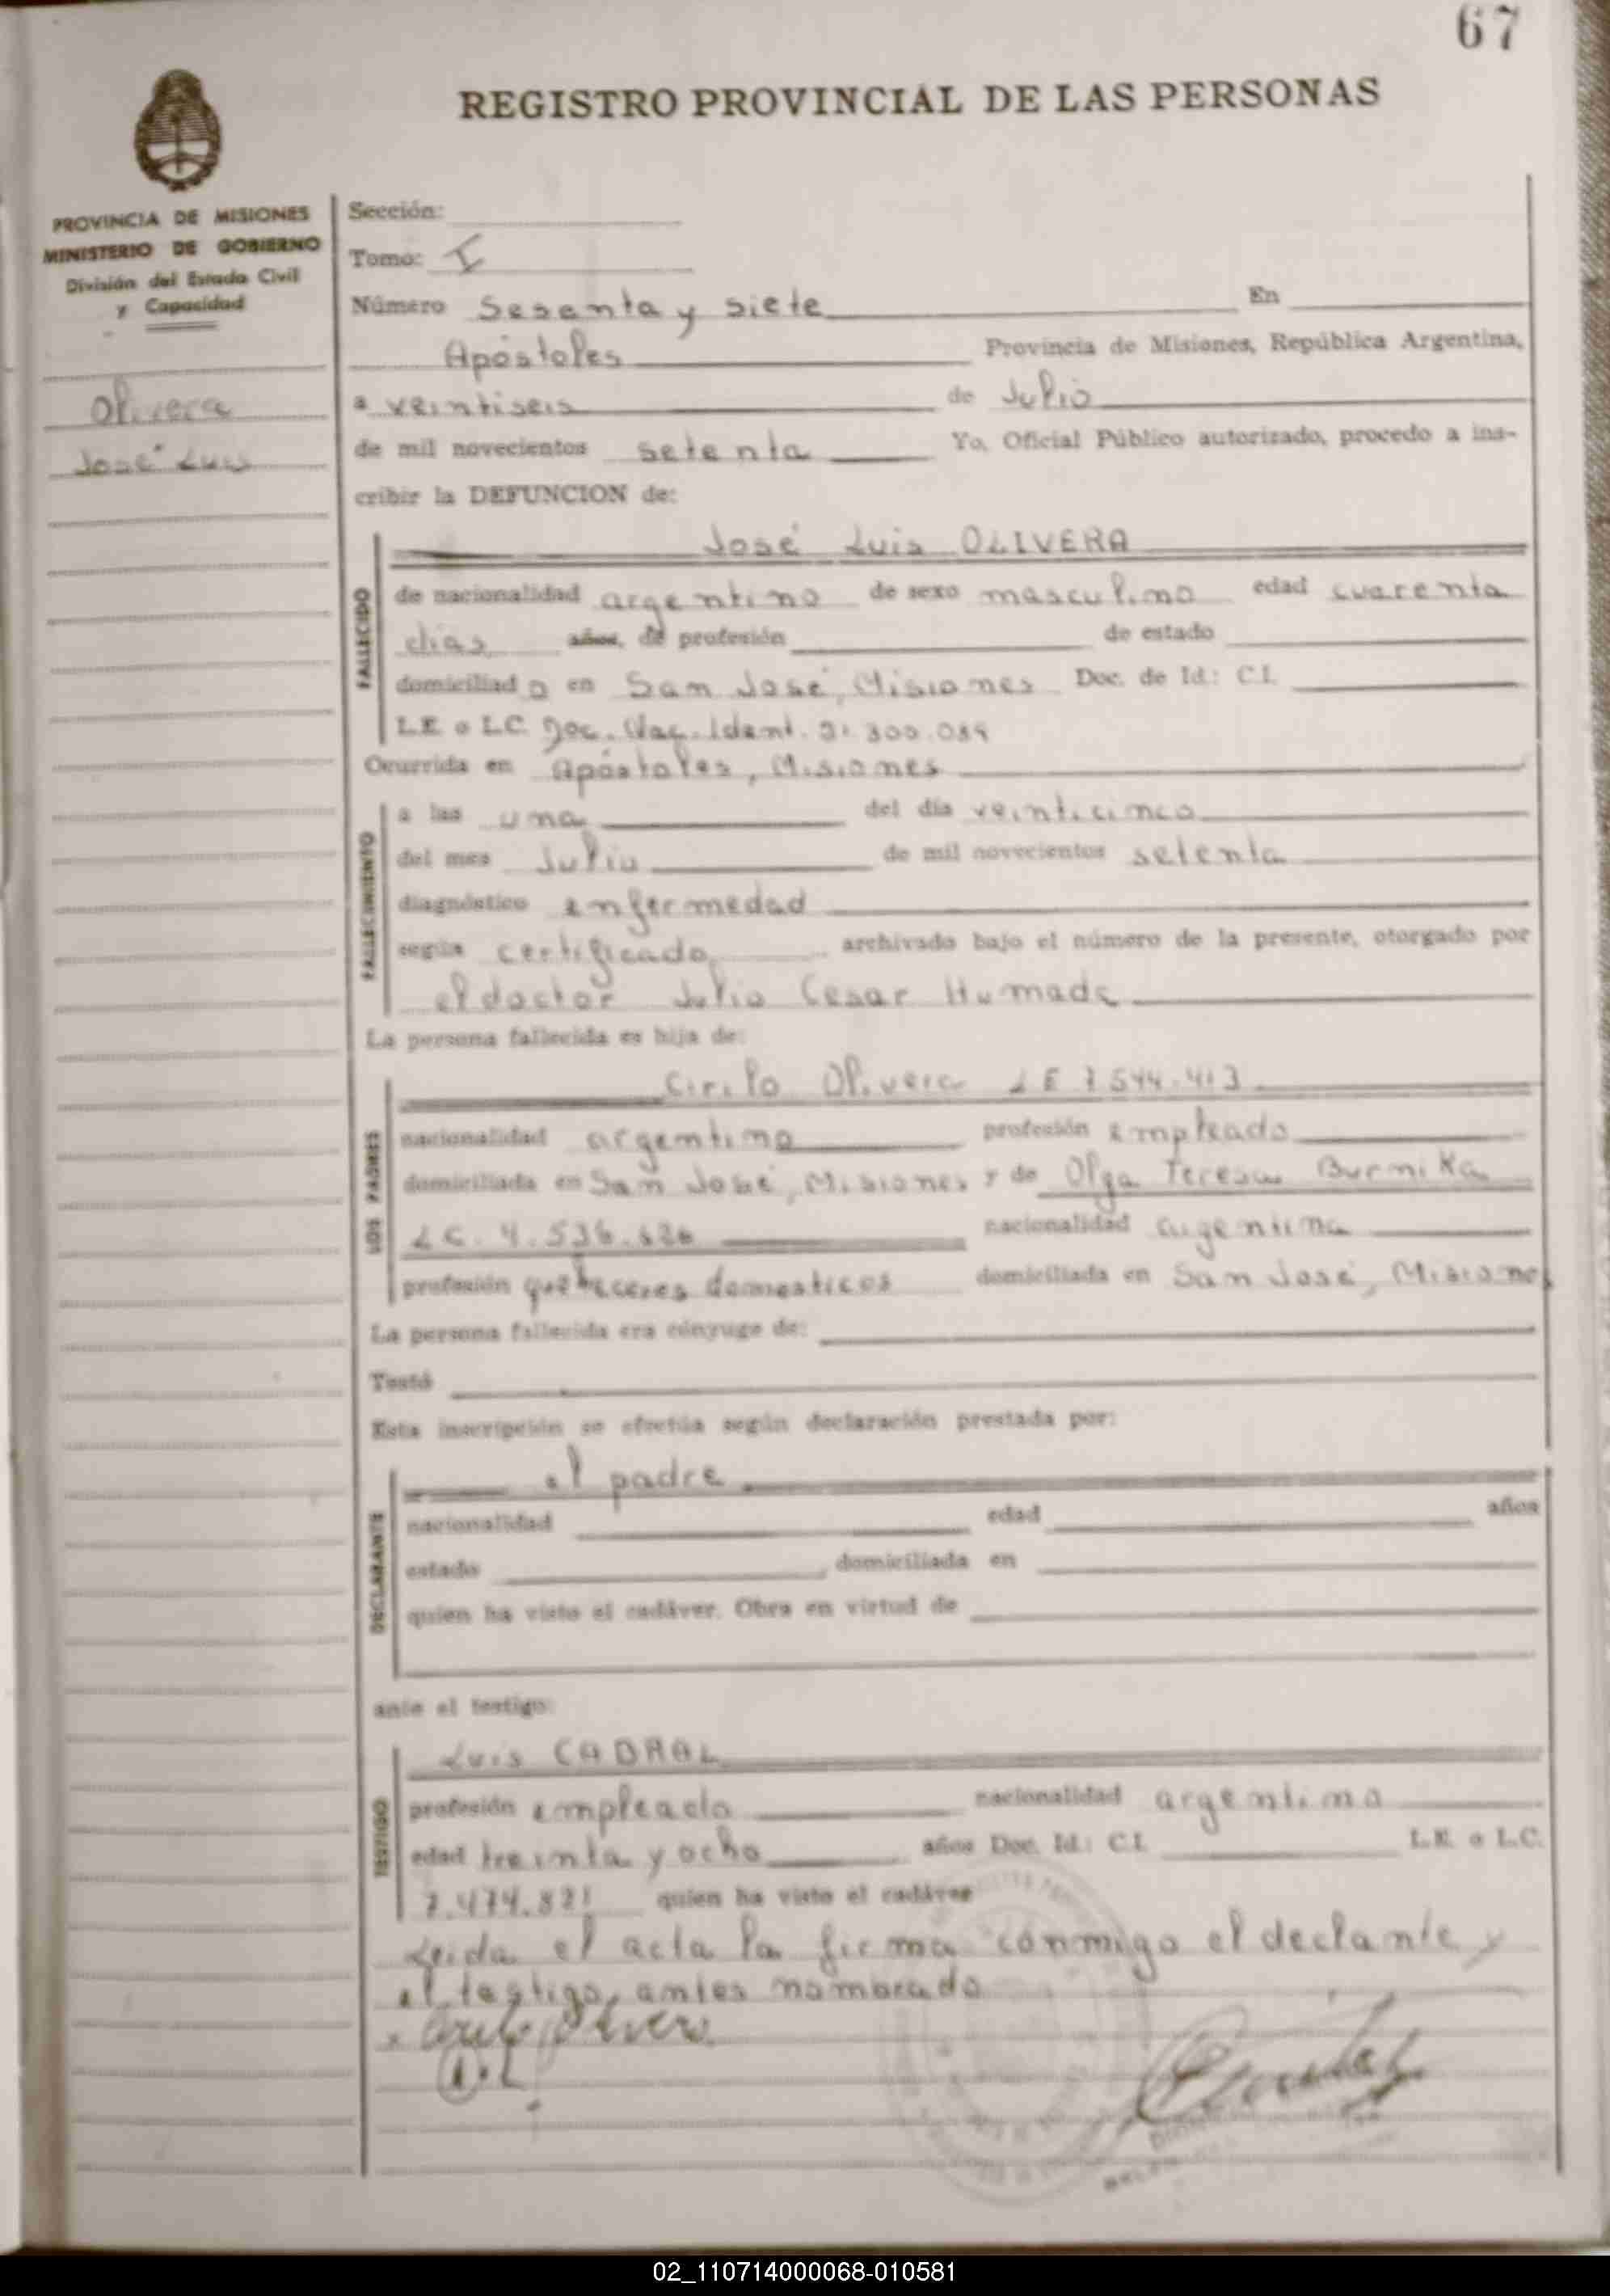 67
REGISTRO PROVINCIAL DE LAS PERSONAS
PROVINCIA DE MISIONES
MINISTERIO DE GOBIERNO
División del Estado Civil
y Capacidad
Olivera
José Luis
Sección:
Tomo: I
Número Sesenta y siete En
Apóstoles Provincia de Misiones, República Argentina,
a veintiseis de Julio
de mil novecientos setenta Yo, Oficial Público autorizado, procedo a ins-
cribir la DEFUNCION de:
José Luis OLIVERA
FALLECIDO
de nacionalidad argentino de sexo masculino edad cuarenta
dias años, de profesión de estado
domiciliad o en San José, Misiones Doc. de Id.: C.I.
L.E. o L.C. Doc. Nac. Ident.
Ocurrida en Apóstoles, Misiones
FALLECIMIENTO
a las una del día veinticinco
del mes Julio de mil novecientos setenta
diagnóstico enfermedad
según certificado archivado bajo el número de la presente, otorgado por
el doctor Julio Cesar Humada
La persona fallecida es hija de:
Cirilo Olivera LE 7544.413
LOS PADRES
nacionalidad argentina profesión empleado
domiciliada en San José, Misiones y de Olga Teresa Burnika
LC. 4.536.626 nacionalidad argentina
profesión quehaceres domesticos domiciliada en San José, Misiones
La persona fallecida era cónyuge de:
Testó
Esta inscripción se efectúa según declaración prestada por:
el padre
DECLARANTE
nacionalidad edad años
estado , domiciliada en
quien ha visto el cadáver. Obra en virtud de
ante el testigo:
Luis CABRAL
TESTIGO
profesión empleado nacionalidad argentina
edad treinta y ocho años Doc. Id.: C.I. L.E. o L.C.
7.474.821 quien ha visto el cadáver
Leida el acta la firma conmigo el declante y
el testigo, antes nombrado
Cirilo Olivera
02_110714000068-010581